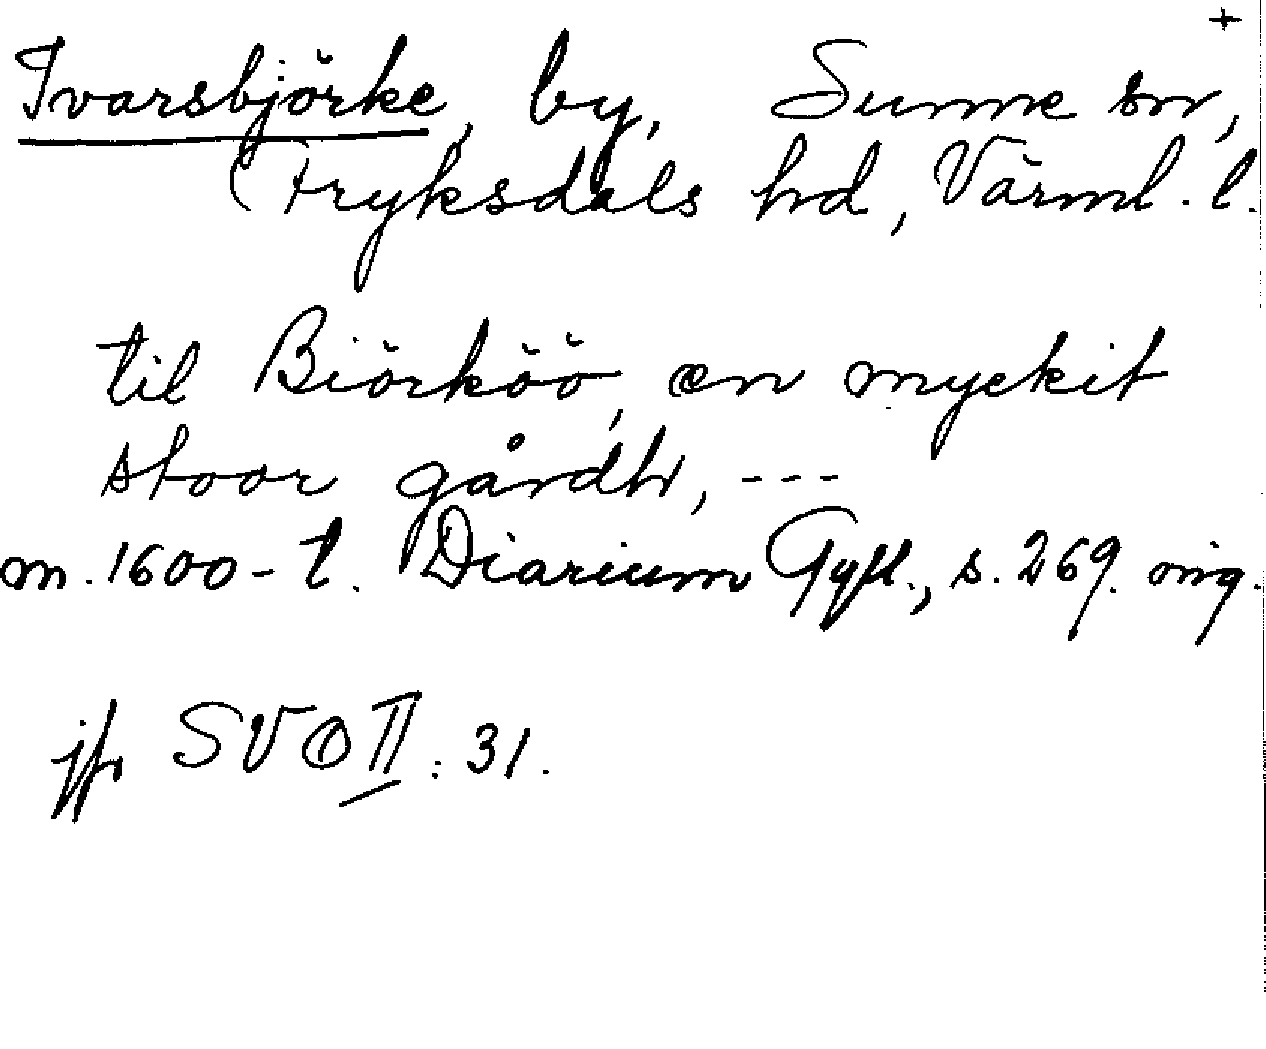 +
Ivarsbjörke, by, Sunne sn,
Fryksdals hd, Värml. l.
til Biörköö, en myckit
stoor gårdh, ---
m. 1600-t. Diarium Gyll., s. 269. orig.
jfr SVO II: 31.